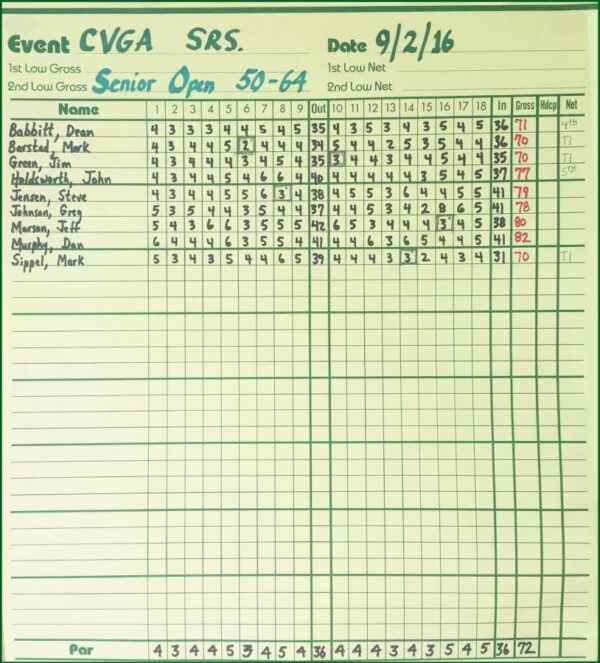 Event CVGA SRS. Date 9/2/16
1st Low Gross 1st Low Net
2nd Low Gross Senior Open 50-64 2nd Low Net
Name 1 2 3 4 5 6 7 8 9 Out 10 11 12 13 14 15 16 17 18 In Gross Hdcp Net
Babbitt, Dean 4 3 3 3 4 4 5 4 5 35 4 3 5 3 4 3 5 4 5 36 71 4th
Barstad, Mark 4 3 4 4 5 2 4 4 4 34 5 4 4 2 5 3 5 4 4 36 70 T1
Green, Jim 4 3 4 4 4 3 4 5 4 35 3 4 4 3 4 4 5 4 4 35 70 T1
Holdsworth, John 4 3 4 4 5 4 6 6 4 40 4 4 4 4 4 3 5 4 5 37 77 5th
Jensen, Steve 4 3 4 4 5 5 6 3 4 38 4 5 5 3 6 4 4 5 5 41 79
Johnson, Greg 5 3 5 4 4 3 5 4 4 37 4 4 5 3 4 2 8 6 5 41 78
Marson, Jeff 5 4 3 6 6 3 5 5 5 42 6 5 3 4 4 4 3 4 5 38 80
Murphy, Dan 6 4 4 4 6 3 5 5 4 41 4 4 6 3 6 5 4 4 5 41 82
Sippel, Mark 5 3 4 3 5 4 4 6 5 39 4 4 4 3 3 2 4 3 4 31 70 T1
Par 4 3 4 4 5 3 4 5 4 36 4 4 4 3 4 3 5 4 5 36 72